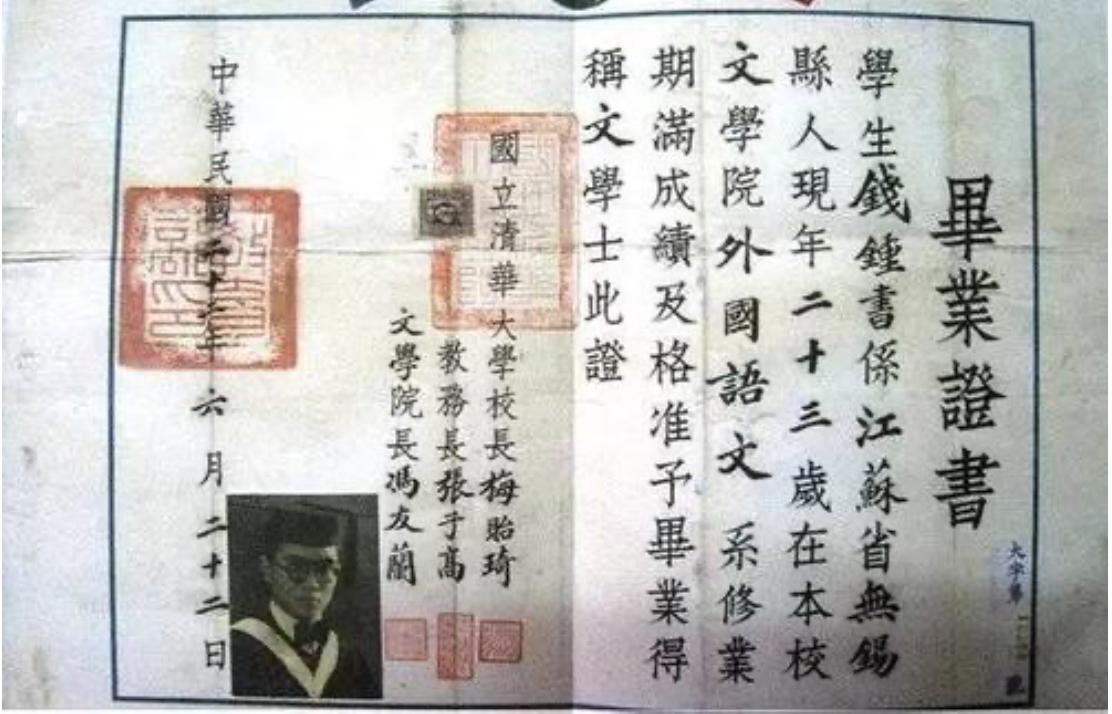 畢業證書
學生錢鍾書係江蘇省無錫
縣人現年二十三歲在本校
文學院外國語文系修業
期滿成績及格准予畢業得
稱文學士此證
國立清華大學校長梅貽琦
教務長張子高
文學院長馮友蘭
中華民國二十二年六月二十二日
大字第
號